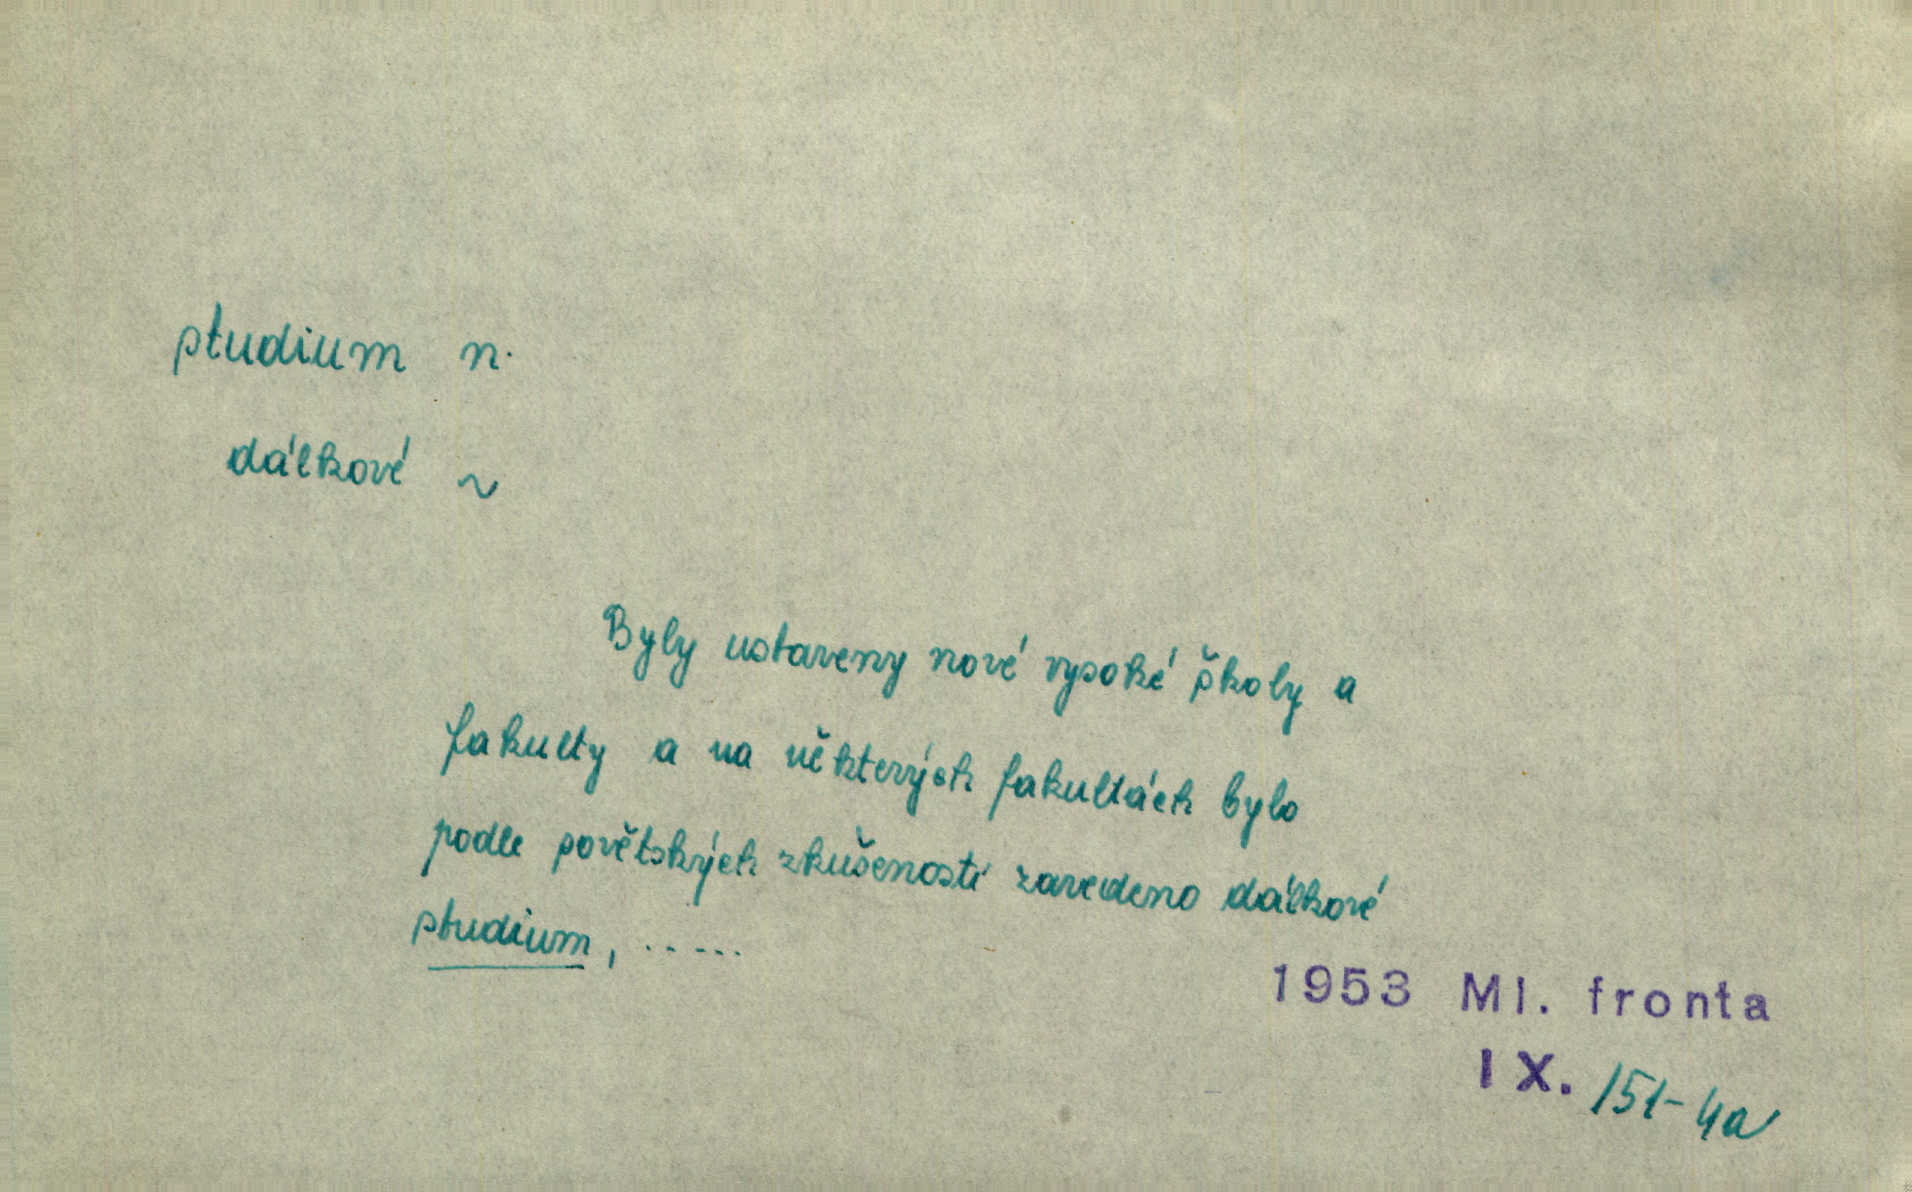 studium n.
dálkové ~
Byly ustaveny nové vysoké školy a
fakulty a na některých fakultách bylo
podle sovětských zkušeností zavedeno dálkové
studium, .....
1953 Ml. fronta
IX. 151-4a